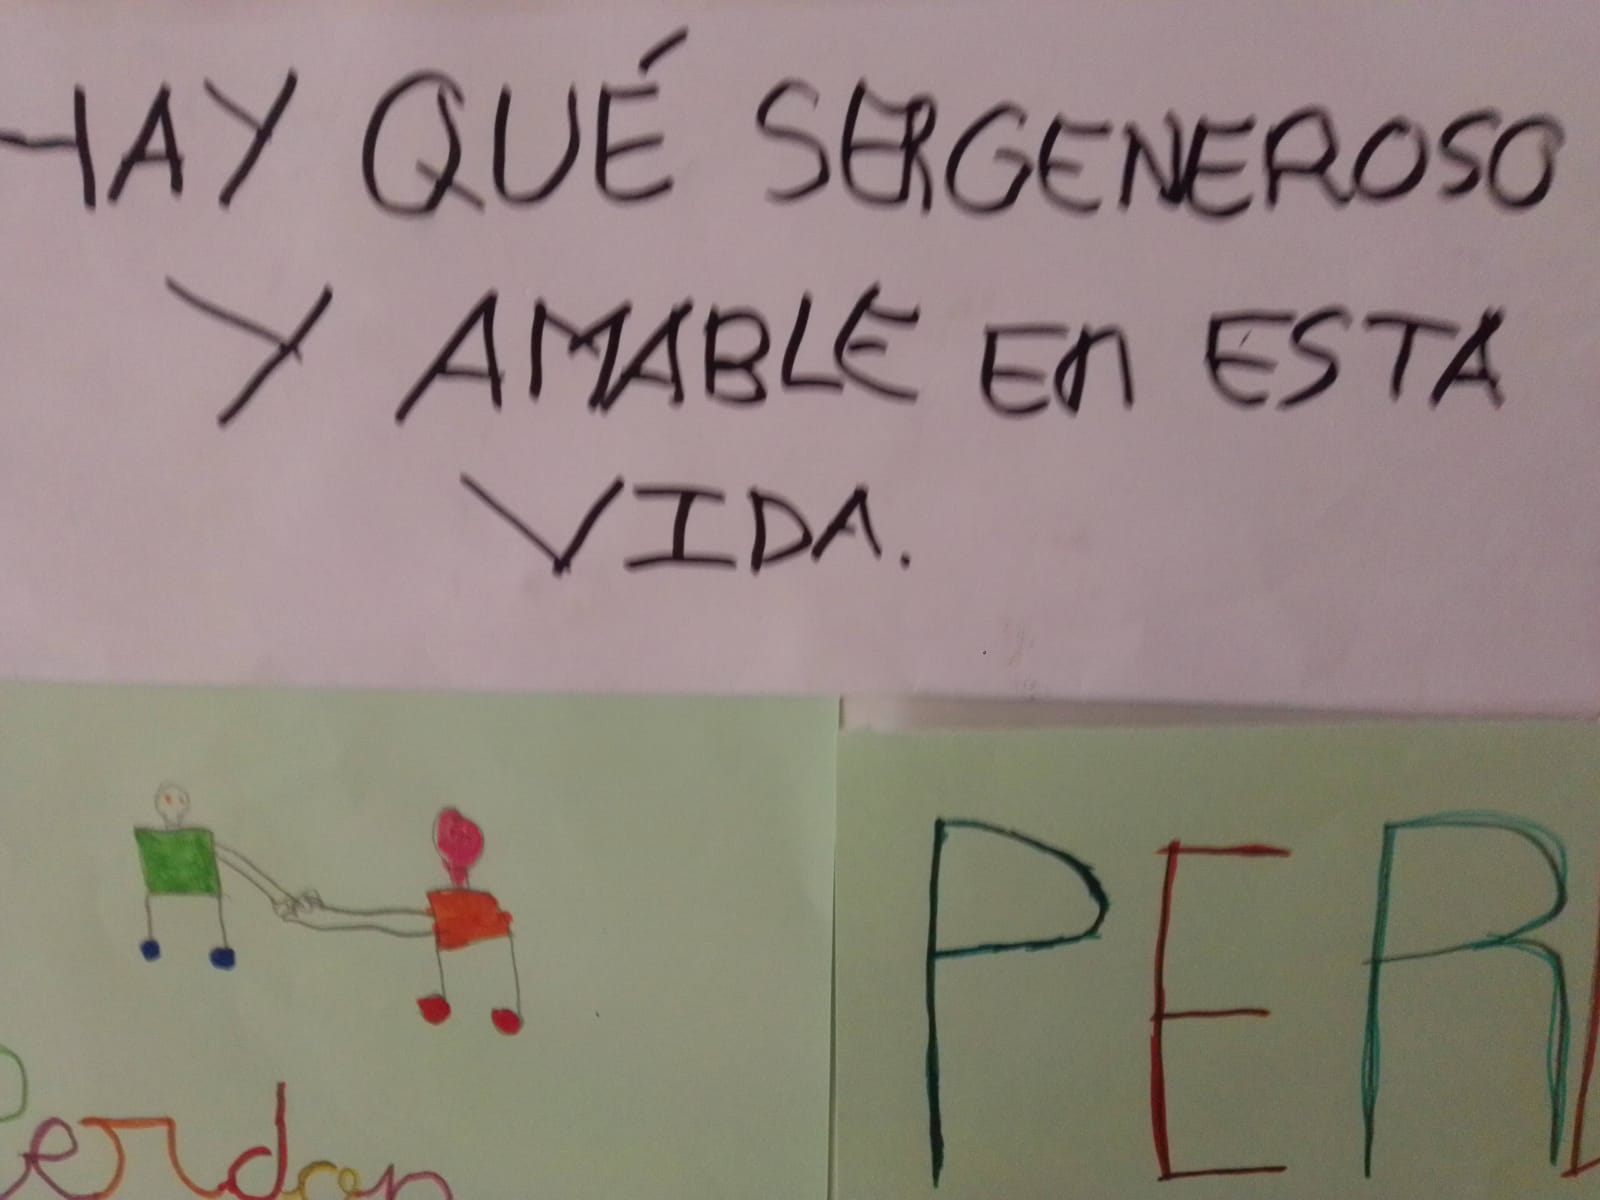 HAY QUÉ SER GENEROSO
Y AMABLE En ESTA
VIDA.
Perdon
PER